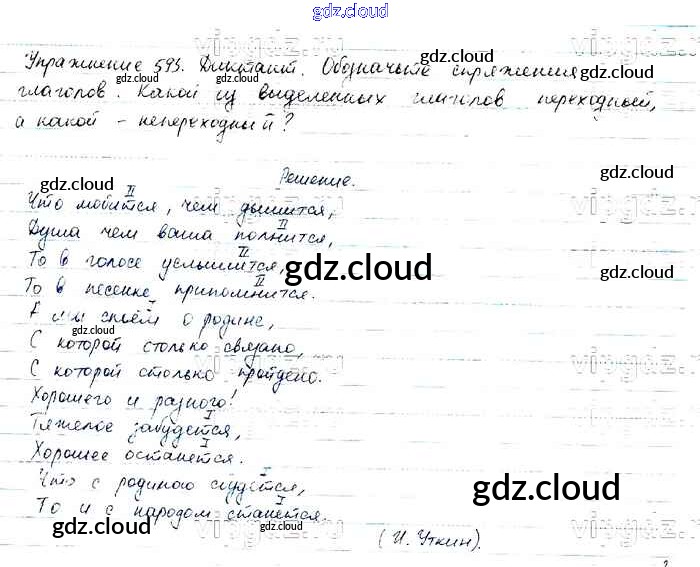 gdz.cloud
Упражнение 593. Диктант. Обозначьте спряжения
gdz.cloud
gdz.cloud
глаголов. Какой из выделенных глаголов переходный,
а какой - непереходный?
gdz.cloud
Решение.
gdz.cloud
II
Что любится, чем дышится,
II
Душа чем ваша полнится,
II
То в голосе услышится,
gdz.cloud
II
То в песенке припомнится.
I
А мы споём о родине,
gdz.cloud
С которой столько связано,
С которой столько пройдено.
gdz.cloud
Хорошего и разного!
I
Тяжелое забудется,
I
Хорошее останется.
gdz.cloud
I
Что с родиною сбудется,
gdz.cloud
I
То и с народом станется.
gdz.cloud
(И. Уткин).
gdz.cloud